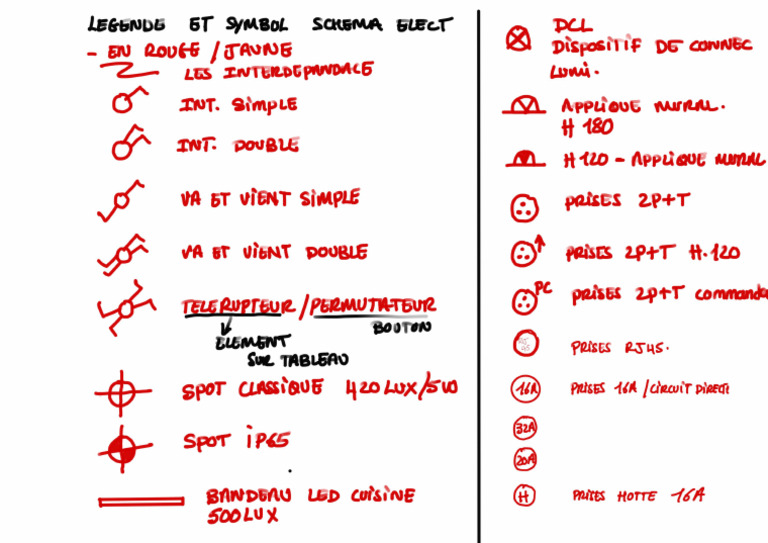 LEGENDE ET SYMBOL SCHEMA ELECT
- EN ROUGE / JAUNE
LES INTERDEPANDACE
INT. SIMPLE
INT. DOUBLE
VA ET VIENT SIMPLE
VA ET VIENT DOUBLE
TELERUPTEUR / PERMUTATEUR
BOUTON
ELEMENT
SUR TABLEAU
SPOT CLASSIQUE 420 LUX/500
SPOT IP65
BANDEAU LED CUISINE
500 LUX
DCL
DISPOSITIF DE CONNEC
LUMI.
APPLIQUE MURAL.
H 180
H 120 - APPLIQUE MURAL
PRISES 2P+T
PRISES 2P+T H.120
PC
PRISES 2P+T commande
PRISES RJ45.
16A PRISES 16A / CIRCUIT DIRECT
32A
20A
H PRISES HOTTE 16A